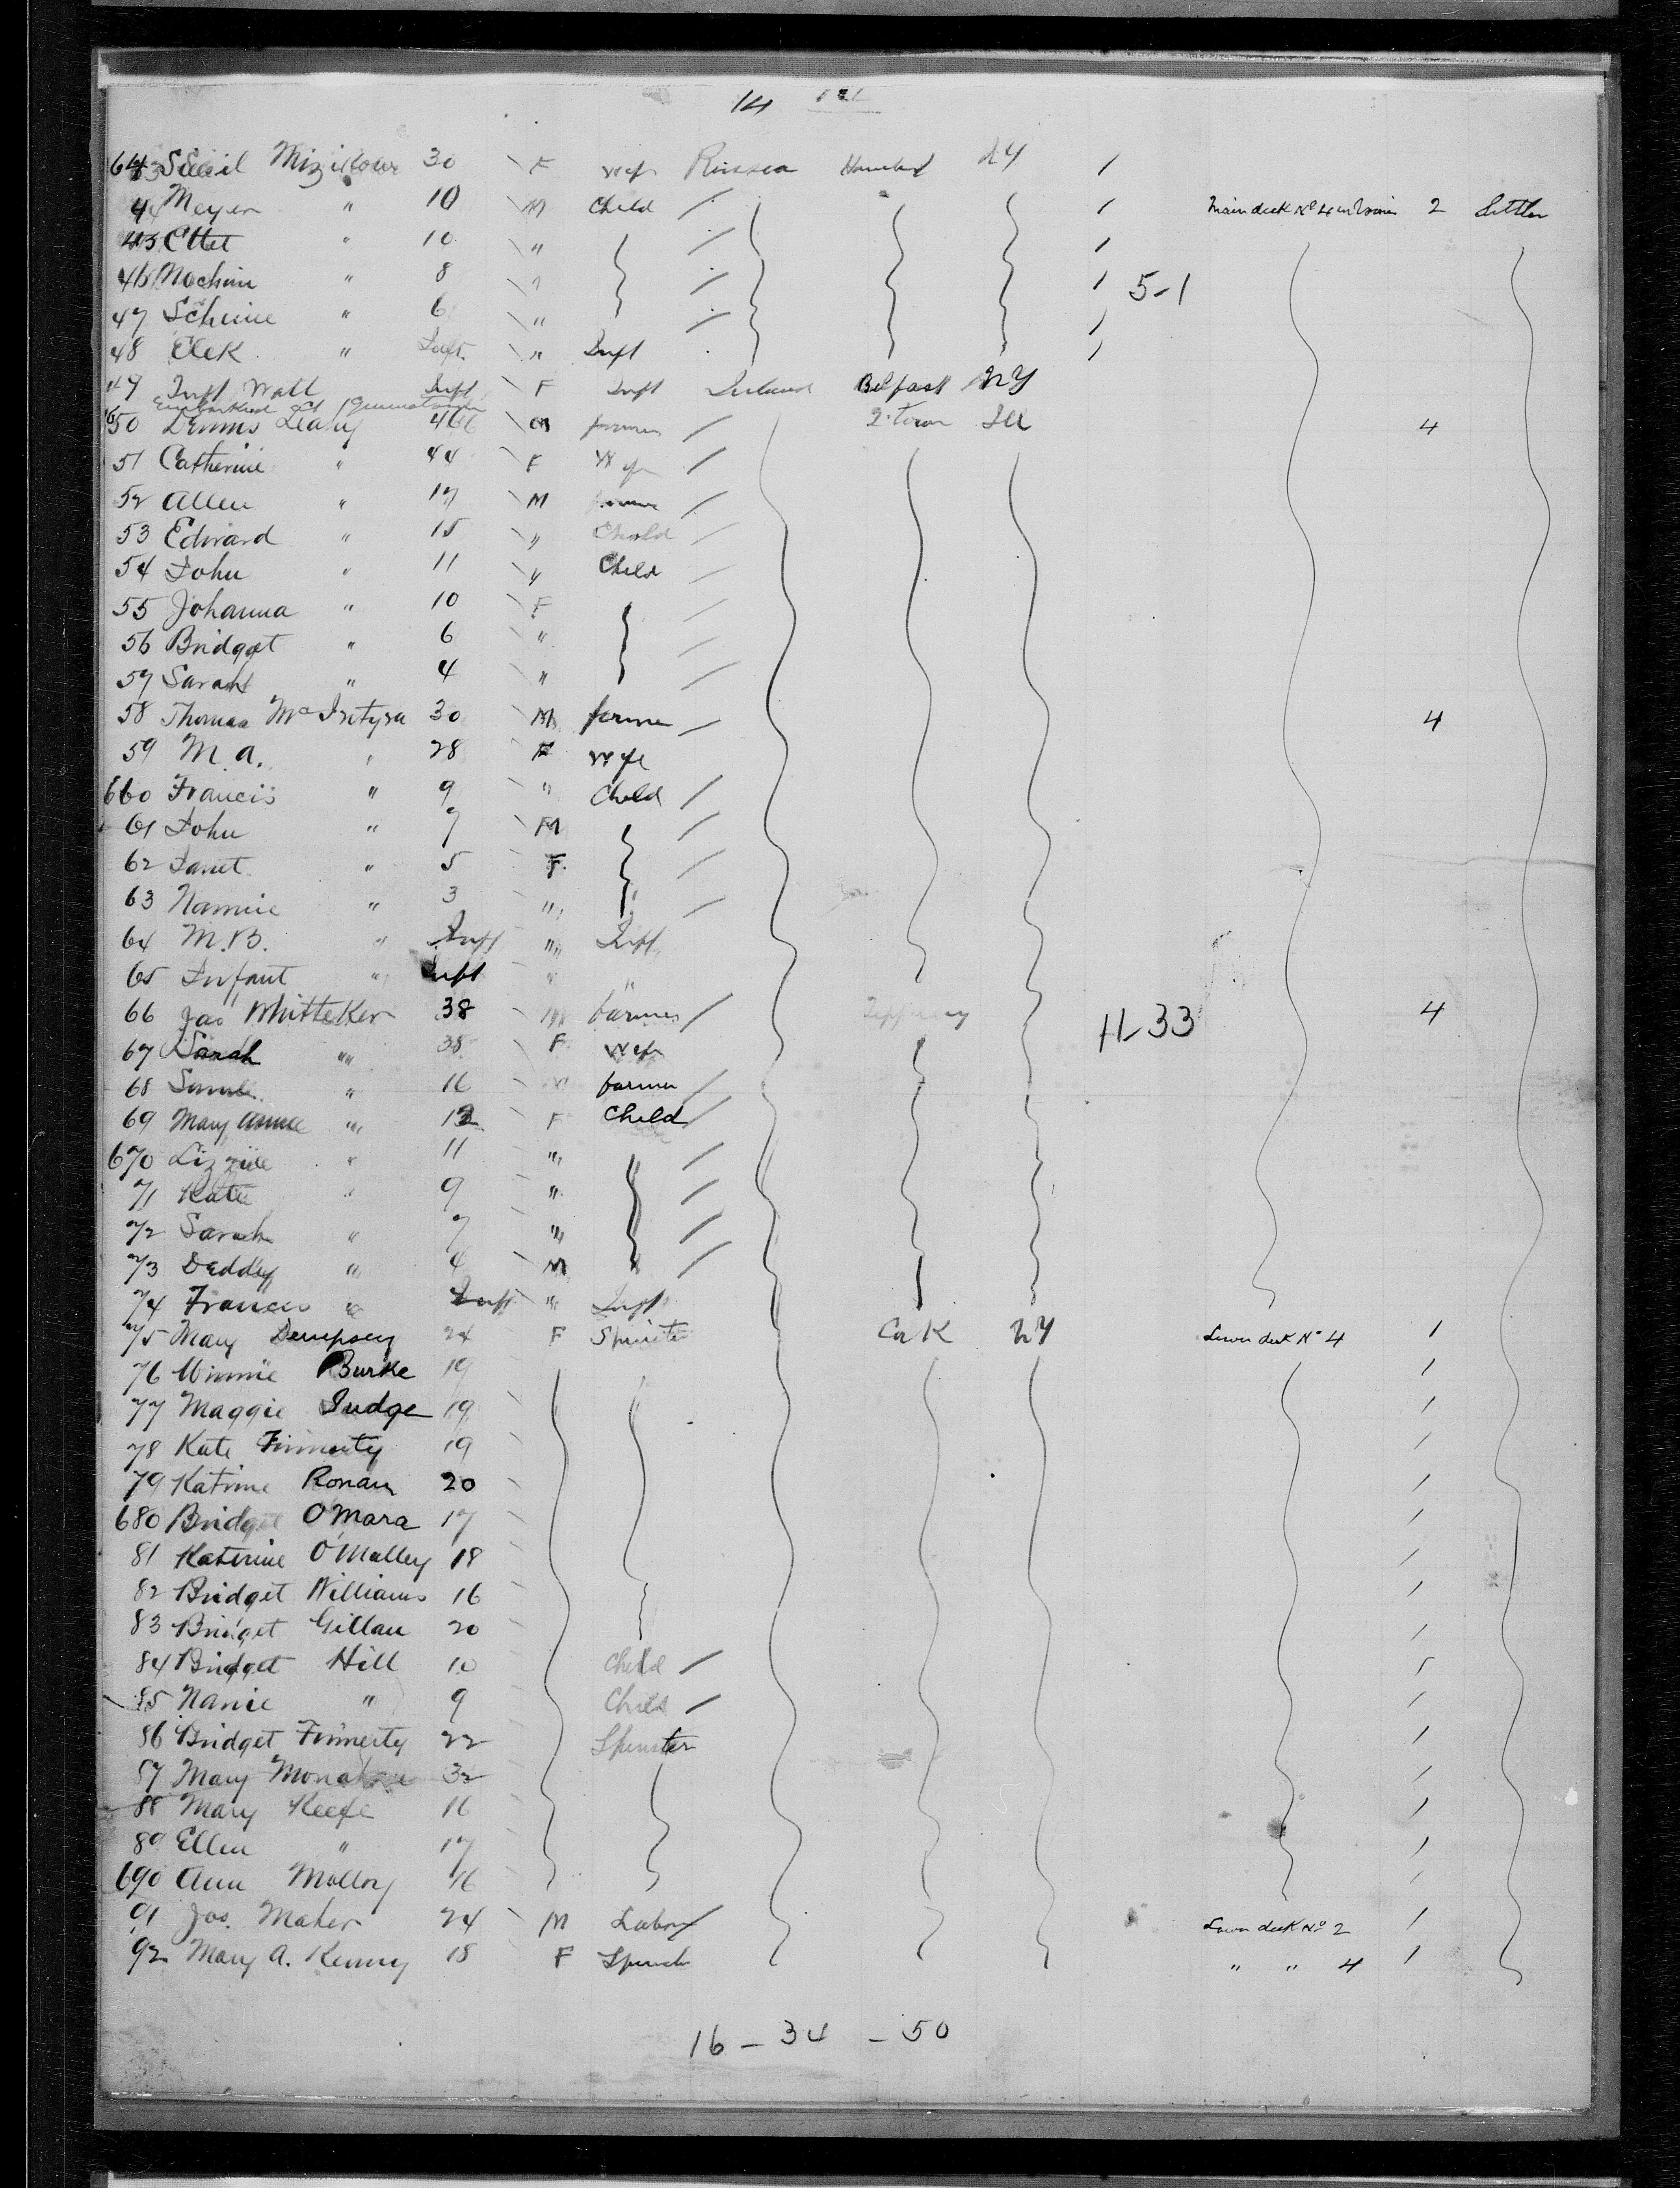 14
643 30 F wife Russia NY 1
44 Meyer " 10 M Child / 1 Main deck No 4 2 Settler
45 Ettet " 10 " / 1
46 Nochim 8 " / 1 5-1
47 " 6 " / 1
48 Elek " Inft " Inft 1
49 Inft Watt Inft F Inft Ireland Belfast NY
Embarked at Queenstown
650 Dennis Leahy 46 M farmer / Q.town Ill 4
51 Catherine " 44 F Wife /
52 Allen " 17 M farmer /
53 Edward " 15 " Child /
54 John " 11 " Child /
55 Johanna " 10 F /
56 Bridget " 6 " /
57 Sarah " 4 " /
58 Thomas McIntyre 30 M farmer / 4
59 M. A. " 28 F wife
660 Francis " 9 " Child /
61 John " 7 M /
62 Janet " 5 F /
63 Nannie " 3 " /
64 M.B. " Inft " Inft
65 Infant " Inft " "
66 Jas Whitteker 38 M farmer / Tipperary 11-33 4
67 Sarah " 38 F wife
68 " 16 farmer /
69 Mary Annie " 12 F Child /
670 Lizzie " 11 " /
71 Kate " 9 " /
72 Sarah " 7 " /
73 " 4 M /
74 Francis " Inft " Inft
75 Mary Dempsey 24 F Spinster Cork NY Lower deck No 4 1
76 Winnie Burke 19 1
77 Maggie Judge 19 1
78 Kate Finnerty 19 1
79 Katrine Ronan 20 1
680 Bridget O'Mara 17 1
81 Katerine O'Malley 18 1
82 Bridget Williams 16 1
83 Bridget Gillan 20 1
84 Bridget Hill 10 Child / 1
85 Nanie " 9 Child / 1
86 Bridget Finnerty 22 Spinster 1
87 Mary 32 1
88 Mary Keefe 16 1
89 Ellen " 17 1
690 Ann Molloy 16 1
91 Jos. Maher 24 M Labor / Lower deck No 2 1
92 Mary A. Kenny 18 F Spinster " " 4 1
16 - 34 - 50